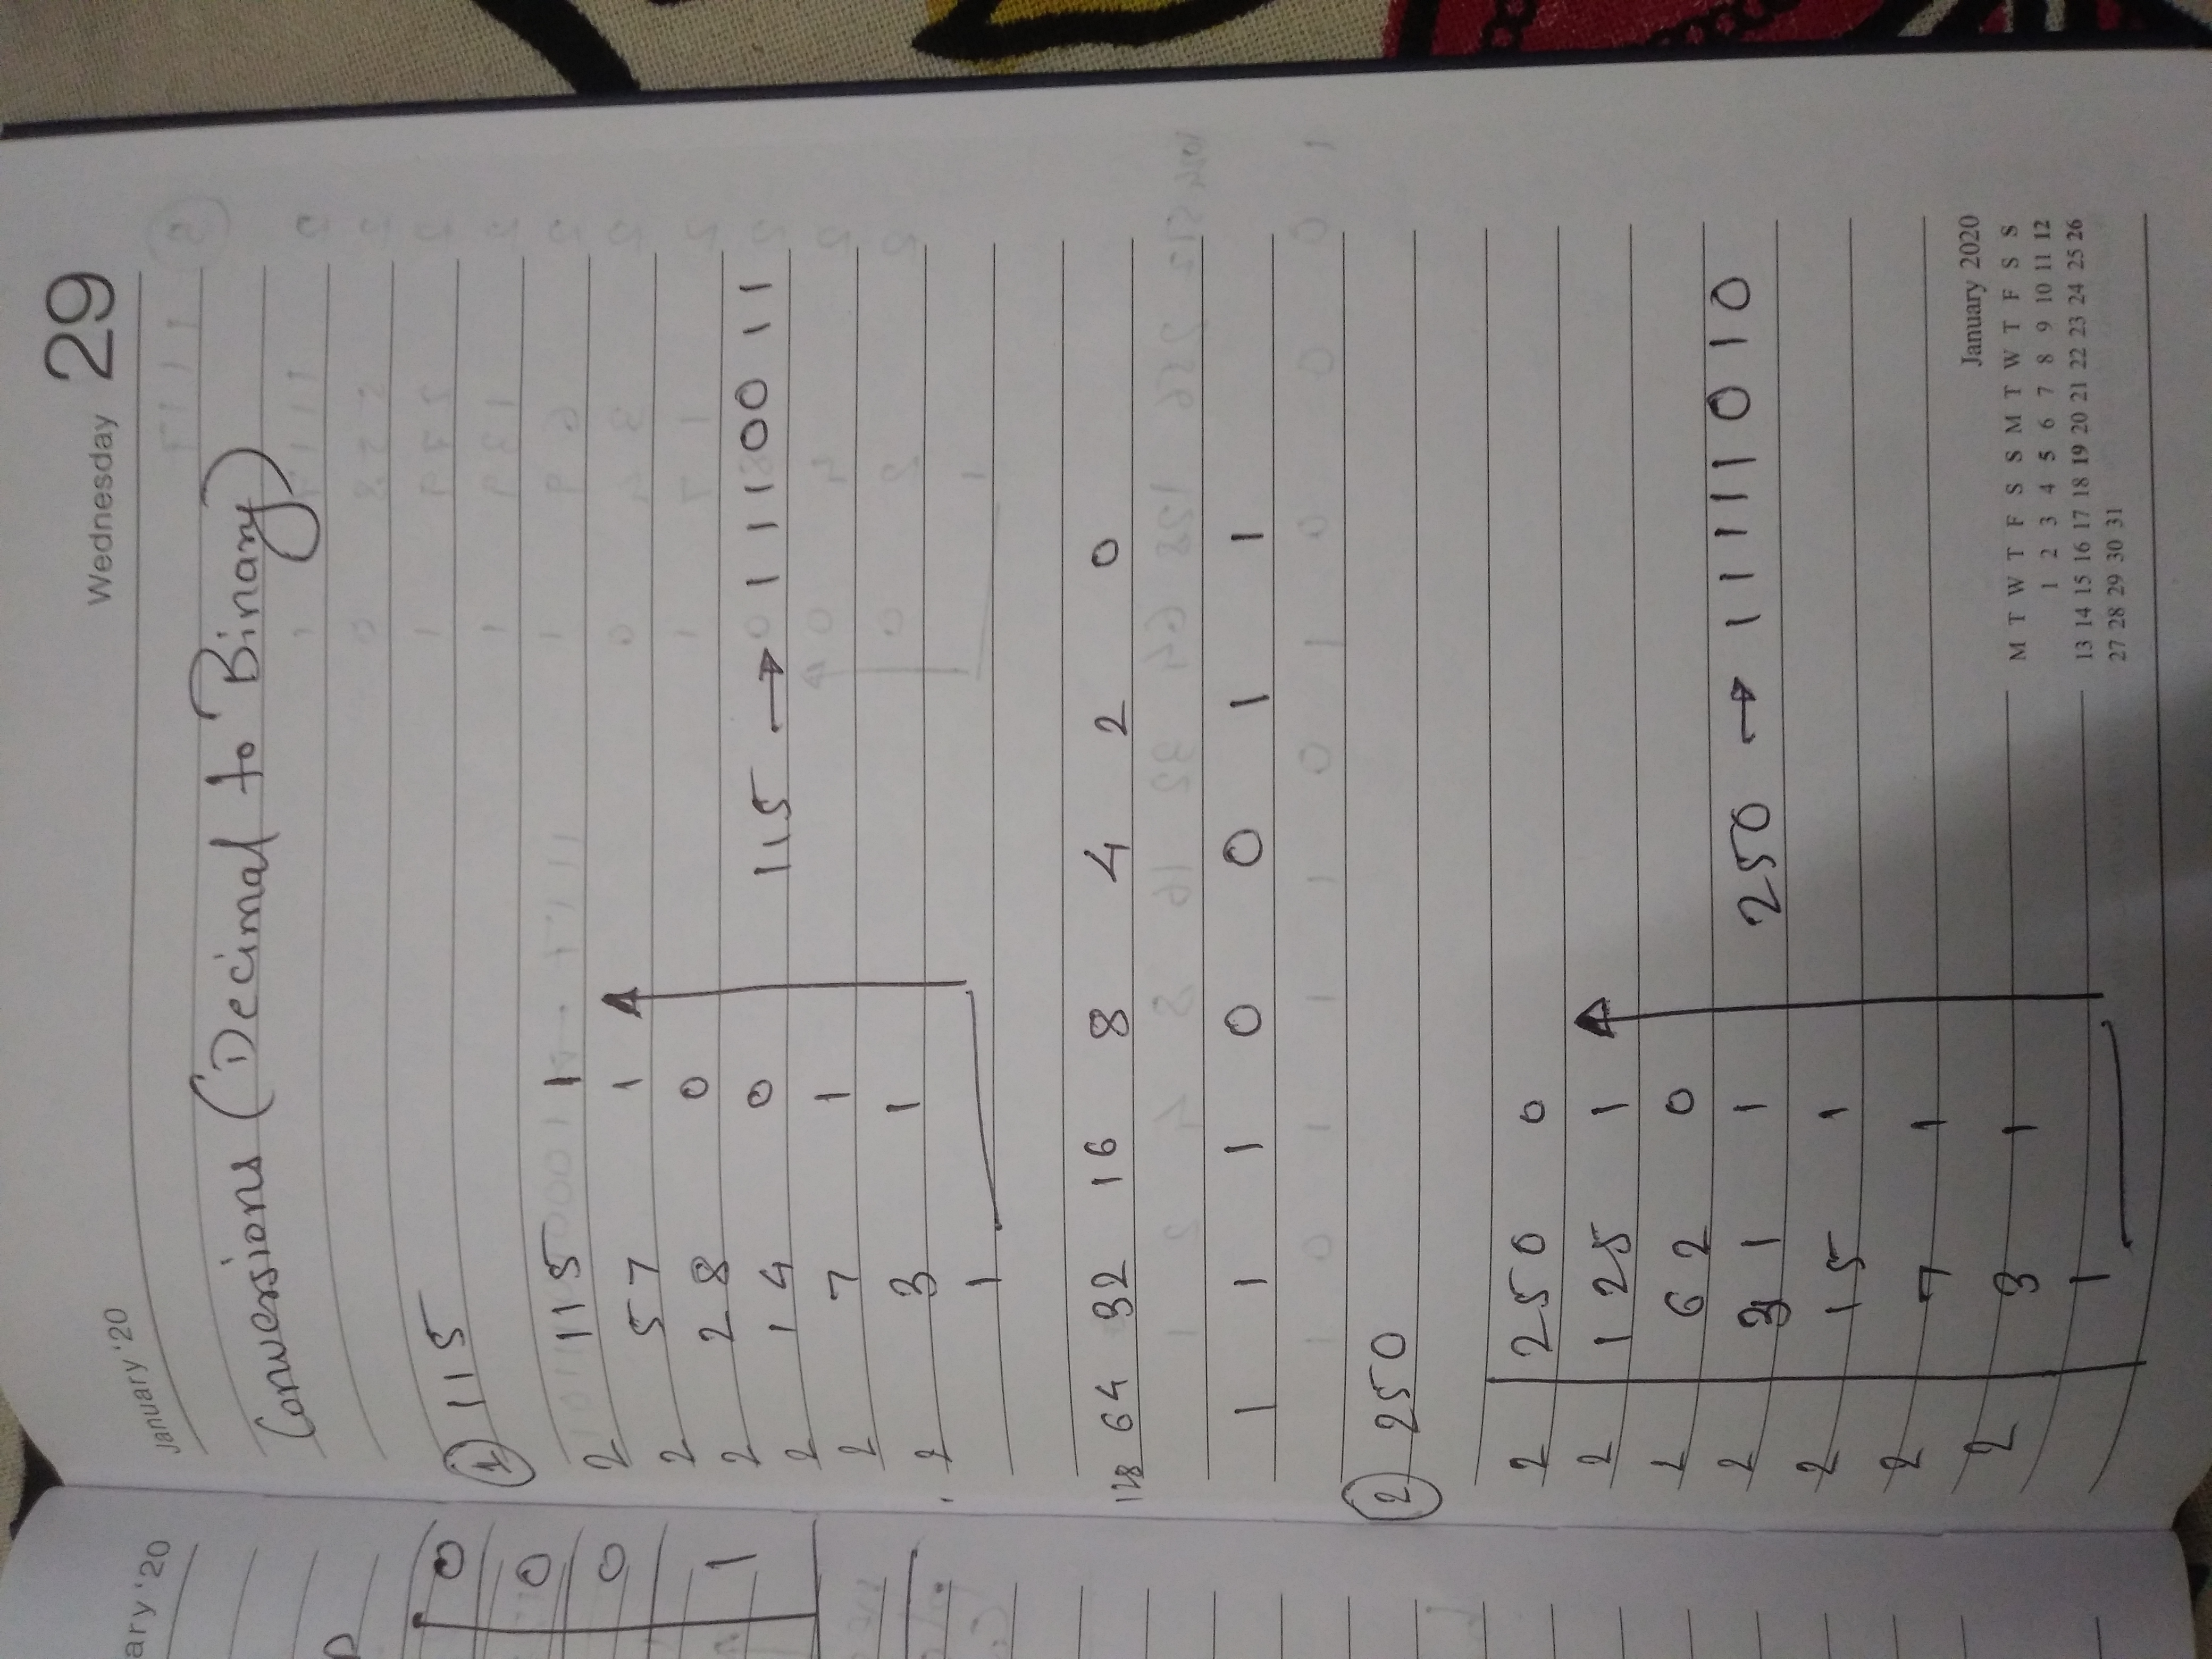 ary '20
January '20
Wednesday 29
Conversions (Decimal to Binary)
0
0
0
1
① 115
2 115 1
2 57 1
2 28 0
2 14 0
2 7 1
2 3 1
1
115 → 1110011
128 64 32 16 8 4 2 0
1 1 1 0 0 1 1
② 250
2 250 0
2 125 1
2 62 0
2 31 1
2 15 1
2 7 1
2 3 1
1
250 → 11111010
January 2020
M T W T F S S M T W T F S S
1 2 3 4 5 6 7 8 9 10 11 12
13 14 15 16 17 18 19 20 21 22 23 24 25 26
27 28 29 30 31